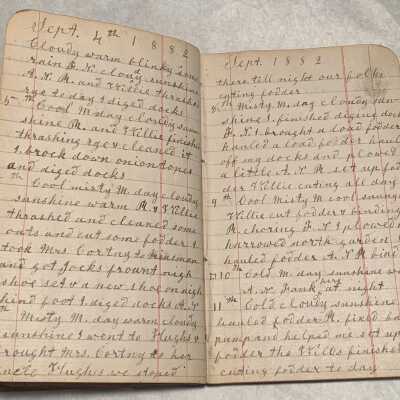 Sept. 4th 1882
Cloudy warm blinky some
rain P. N. cloudy sunshine
A. N. R. and Willie thrash
rye to day I diged docks
5th Cool M day cloudy sun
shine R. and Willie finished
thrashing rye & cleaned it
I brock down onion tones
and diged docks
6th Cool misty M. day cloudy
sunshine warm R. & Willie
thrashed and cleaned some
oats and cut some fodder I
took Mrs. Cortny to
and got Jocks frount nigh
shoe set & a new shoe on nigh
hind foot I diged docks A. N.
7th Misty M. day warm cloudy
sunshine I went to Hughs &
brought Mrs. Cortny to her
uncle Hughs we stoped
Sept. 1882
there till night our folks
cuting fodder
8th Misty M. day cloudy sun
shine I finished diging docks
P. N. I brought a load fodder
hauled a load fodder hauled
off my docks and plowed
a little A. N. R. set up fod
der Willie cuting all day
9th Cool Misty M cool sunny
Willie cut fodder & binding
R. choring P. N. I plowed
harrowed north garden
hauled fodder A. N. R. bind
10th Cold M. day sunshine
A. N. Frank here at night
11th Cold cloudy sunshine
hauled fodder R. fixed ba
pump and helped me set up
fodder the & Willie finished
cuting fodder to day